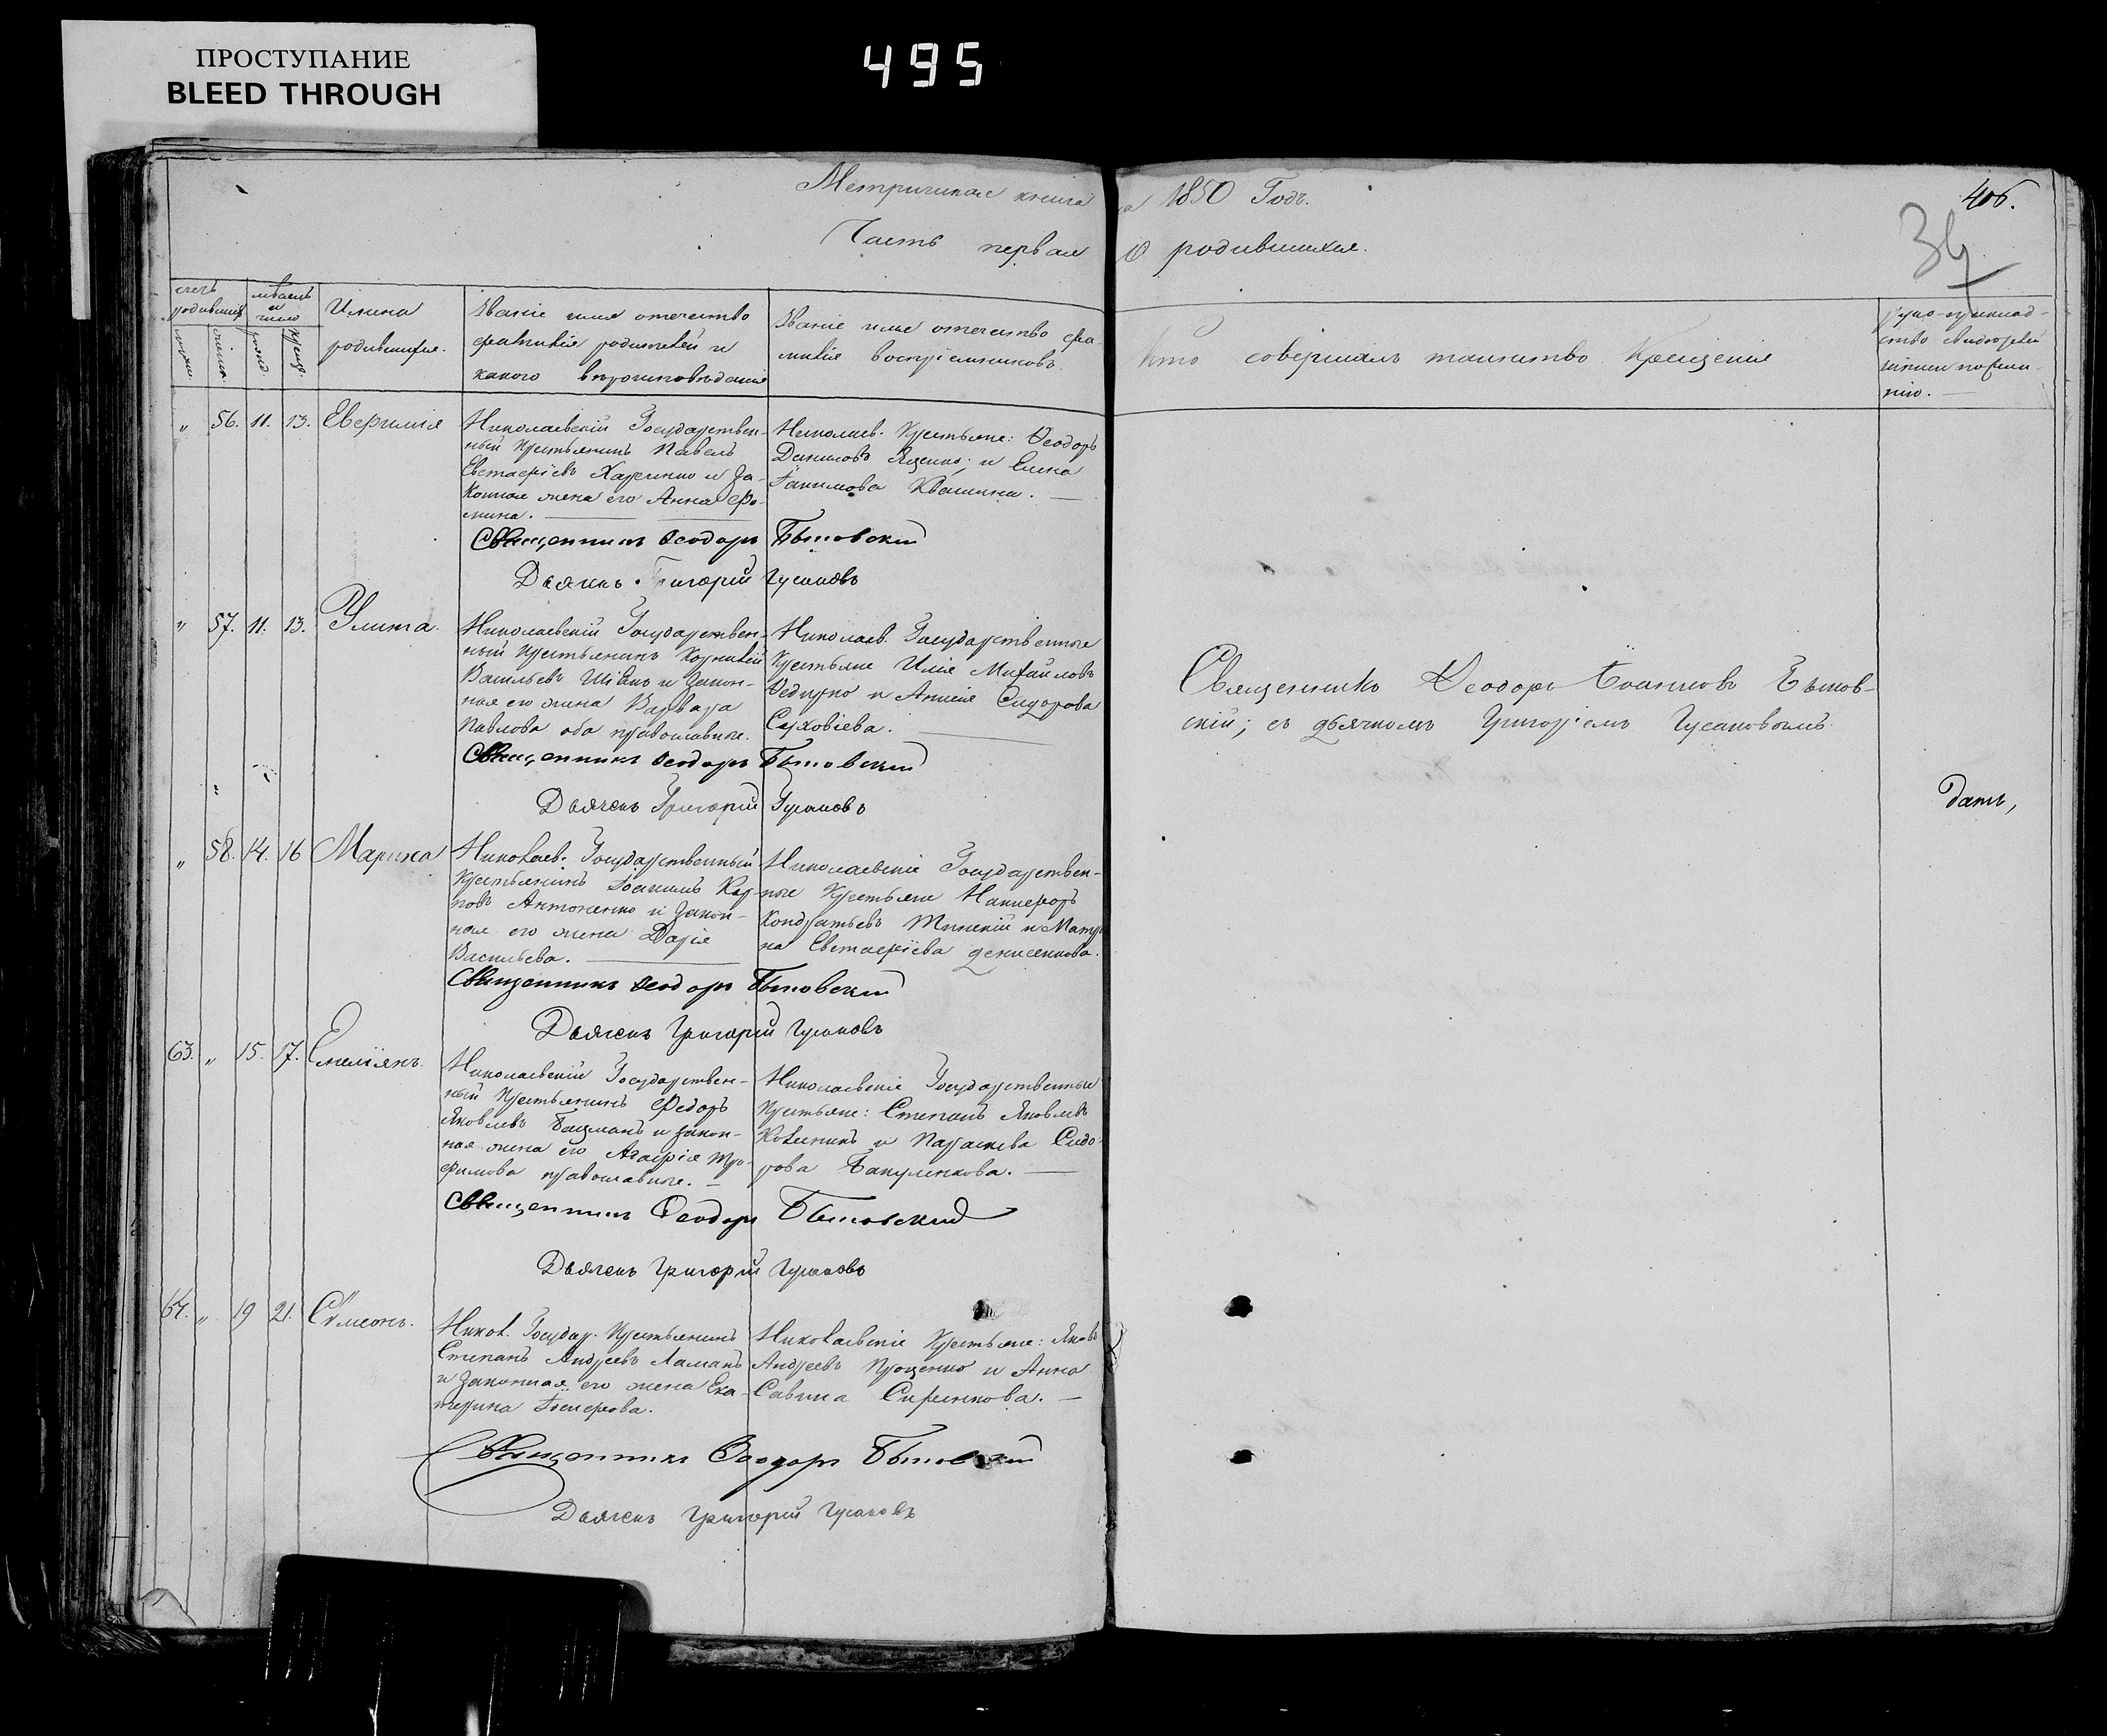 ПРОСТУПАНИЕ
BLEED THROUGH
495
Метрическая книга на 1850 Годъ.
406.
Часть первая о родившихся.
счетъ родившихся
мѣсяцъ и число
Имена родившихся.
Званіе имя отечество фамилія родителей и какого вѣроисповѣданія
Званіе имя отечество фамилія воспріемниковъ.
Кто совершалъ таинство Крещенія
„ 56. 11. 13.
Николаевскій Государствен-
ный Крестьянинъ Павелъ
Евстафіевъ Харченко и За-
конная жена его Анна Фо-
мина.
Николаев. Крестьяне: Ѳеодоръ
Даниловъ Яценко; и Елена
Іакимова Квашина.
Священникъ Ѳеодоръ Бытовский
Дьячекъ Григорий Гусаковъ
„ 57. 11. 13. Улита.
Николаевскій Государствен-
ный Крестьянинъ Корнилій
Васильевъ и Закон-
ная его жена Варвара
Павлова оба православные.
Николаев. Государственные
Крестьяне Илія Михайловъ
и Сидорова
Священникъ Ѳеодоръ Бытовский
Дьячекъ Григорий Гусаковъ
Священникъ Ѳеодоръ Іоанновъ Бытов-
скій; съ дьячкомъ Григоріемъ Гусаковымъ
„ 58. 14. 16 Марѳа
Николаев. Государственный
Крестьянинъ Іоакимъ Кар-
повъ Антоненко и Закон-
ная его жена Дарія
Васильева.
Николаевскіе Государствен-
ные Крестьяне Никифоръ
Кондратьевъ и Матро
на Евстафіева Денисенкова.
Священникъ Ѳеодоръ Бытовский
Дьячекъ Григорий Гусаковъ
63. „ 15. 17. Емеліянъ.
Николаевскій Государствен-
ный Крестьянинъ Федоръ
Яковлевъ Бацманъ и закон-
ная жена его Агафія Тро-
фимова православные.
Николаевскіе Государственные
Крестьяне: Степанъ Яковлевъ
и Параскева Сидо-
рова Бакуменкова.
Священникъ Ѳеодоръ Бытовский
Дьячекъ Григорий Гусаковъ
64. „ 19 21. Сѵмеонъ.
Никол. Государ. Крестьянинъ
Степанъ Андреевъ Ламанъ
и Законная его жена Ека-
терина
Николаевскіе Крестьяне: Яковъ
Андреевъ Проценко и Анна
Савина Сиренкова.
Священникъ Ѳеодоръ Бытовский
Дьячекъ Григорий Гусаковъ